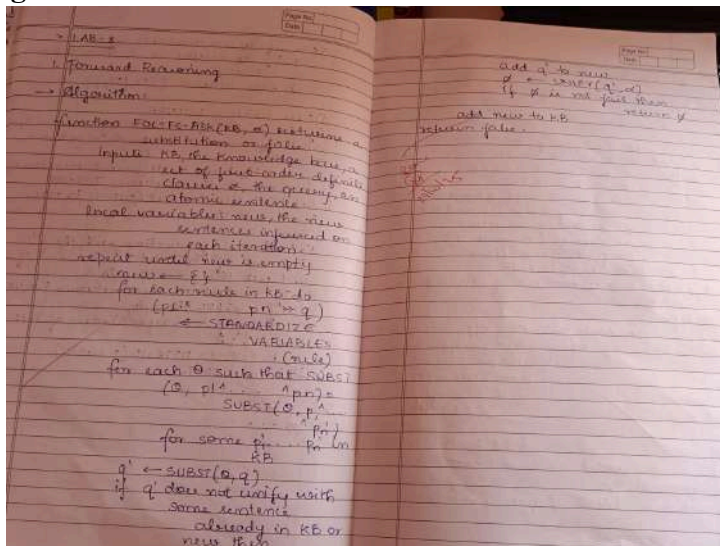 Page No.
Date
> LAB-8
1. Forward Reasoning
→ Algorithm:
function FOL-FC-ASK(KB, α) returns a
substitution or false
inputs: KB, the knowledge base, a
set of first-order definite
clauses α, the query, an
atomic sentence
local variables: new, the new
sentences inferred on
each iteration
repeat until new is empty
new ← { }
for each rule in KB do
(p1^ ... pn => q)
← STANDARDIZE
VARIABLES
(rule)
for each θ such that SUBST
(θ, p1^ ... ^pn) =
SUBST(θ, p'1^
... ^p'n)
for some p'1 ... p'n in
KB
q' ← SUBST(θ, q)
if q' does not unify with
some sentence
already in KB or
new then
Page No.
Date
add q' to new
φ ← UNIFY(q', α)
if φ is not fail then
return φ
add new to KB
return false